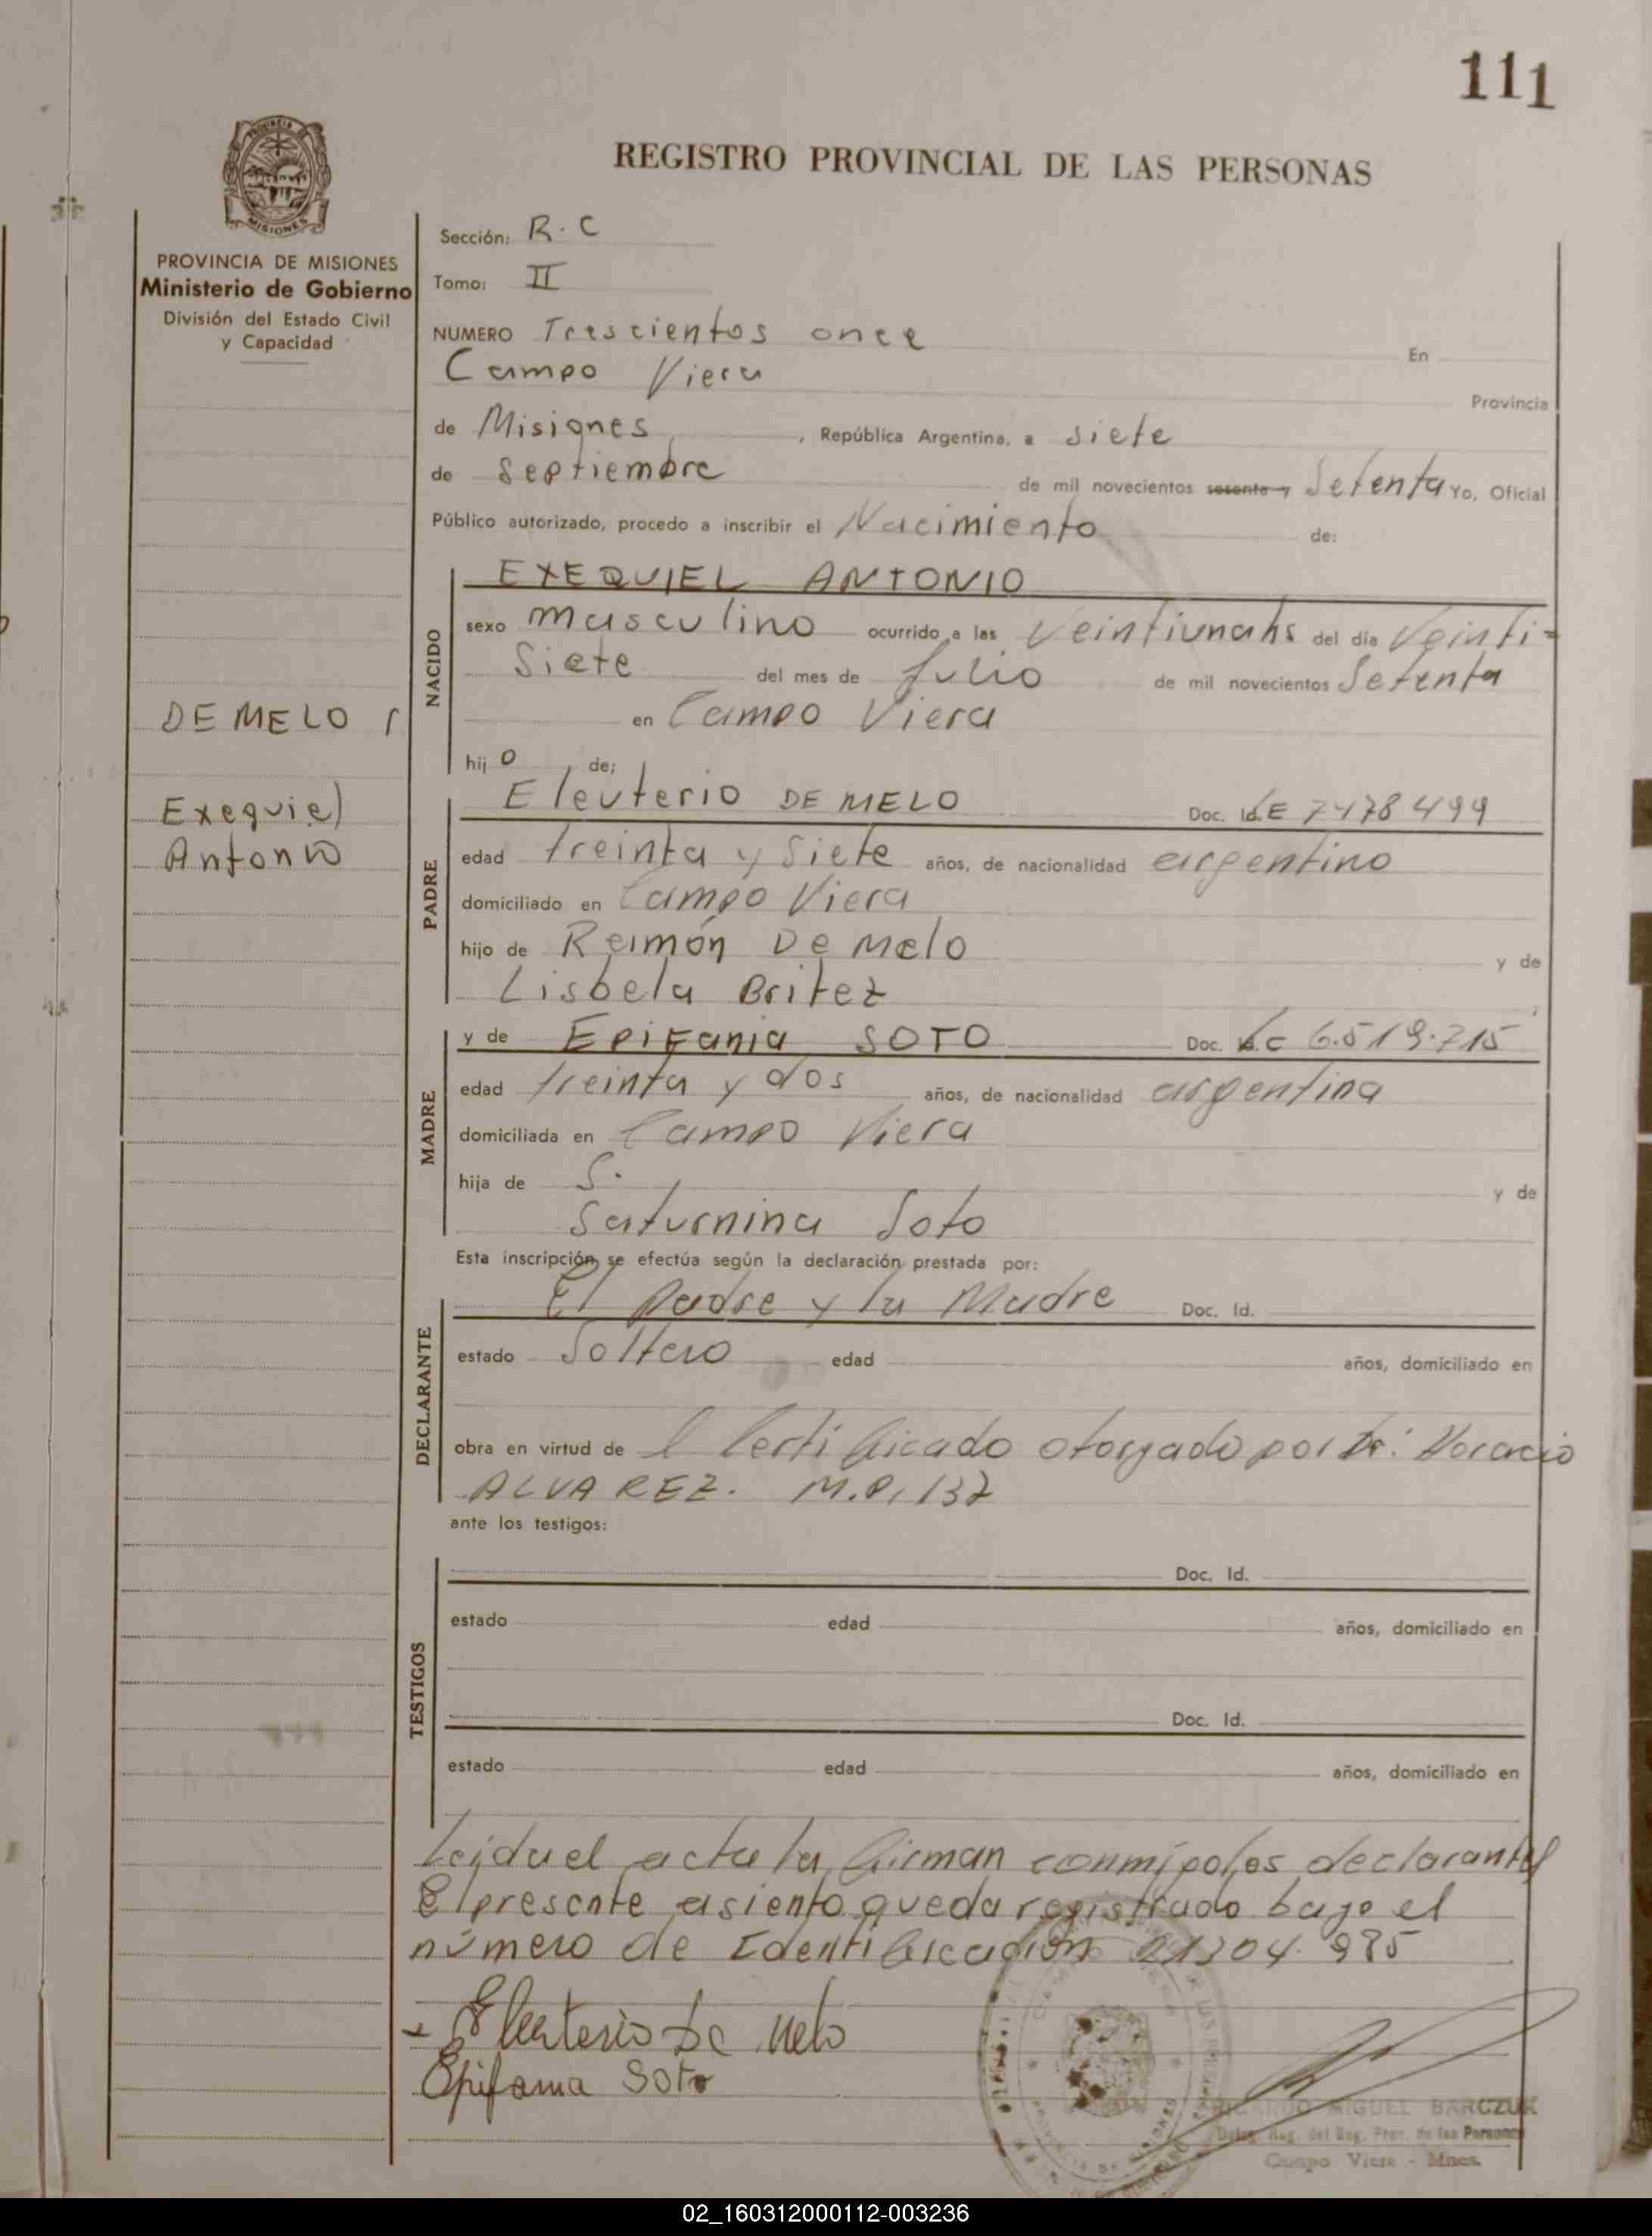 111
PROVINCIA DE
MISIONES
REGISTRO PROVINCIAL DE LAS PERSONAS
PROVINCIA DE MISIONES
Ministerio de Gobierno
División del Estado Civil
y Capacidad
Sección: R.C
Tomo: II
NUMERO Trescientos once En
Campo Viera Provincia
de Misiones, República Argentina, a Siete
de Septiembre de mil novecientos sesenta y Setenta Yo, Oficial
Público autorizado, procedo a inscribir el Nacimiento de:
DE MELO
Exequiel
Antonio
NACIDO
EXEQUIEL ANTONIO
sexo masculino ocurrido a las Veintiunahs del día Veinti-
Siete del mes de Julio de mil novecientos Setenta
en Campo Viera
hij o de;
PADRE
Eleuterio DE MELO Doc. Id. LE 7478499
edad treinta y Siete años, de nacionalidad argentino
domiciliado en Campo Viera
hijo de Ramón De Melo y de
Lisbela Britez
MADRE
y de EPIFania SOTO Doc. L.C 6.519.715
edad treinta y dos años, de nacionalidad argentina
domiciliada en Campo Viera
hija de S. y de
Saturnina Soto
Esta inscripción se efectúa según la declaración prestada por:
DECLARANTE
El Padre y la Madre Doc. Id.
estado Soltero edad años, domiciliado en
obra en virtud de l Certificado otorgado por Dr: Horacio
ALVAREZ. M.P. 137
ante los testigos:
TESTIGOS
Doc. Id.
estado edad años, domiciliado en
Doc. Id.
estado edad años, domiciliado en
Leida el acta la firman conmigo los declarantes
El presente asiento queda registrado bajo el
número de Identificación 21304.985
Eleuterio De Melo
Epifania Soto
RICARDO MIGUEL BARCZUK
Deleg. Reg. del Reg. Prov. de las Personas
Campo Viera - Mnes.
02_160312000112-003236